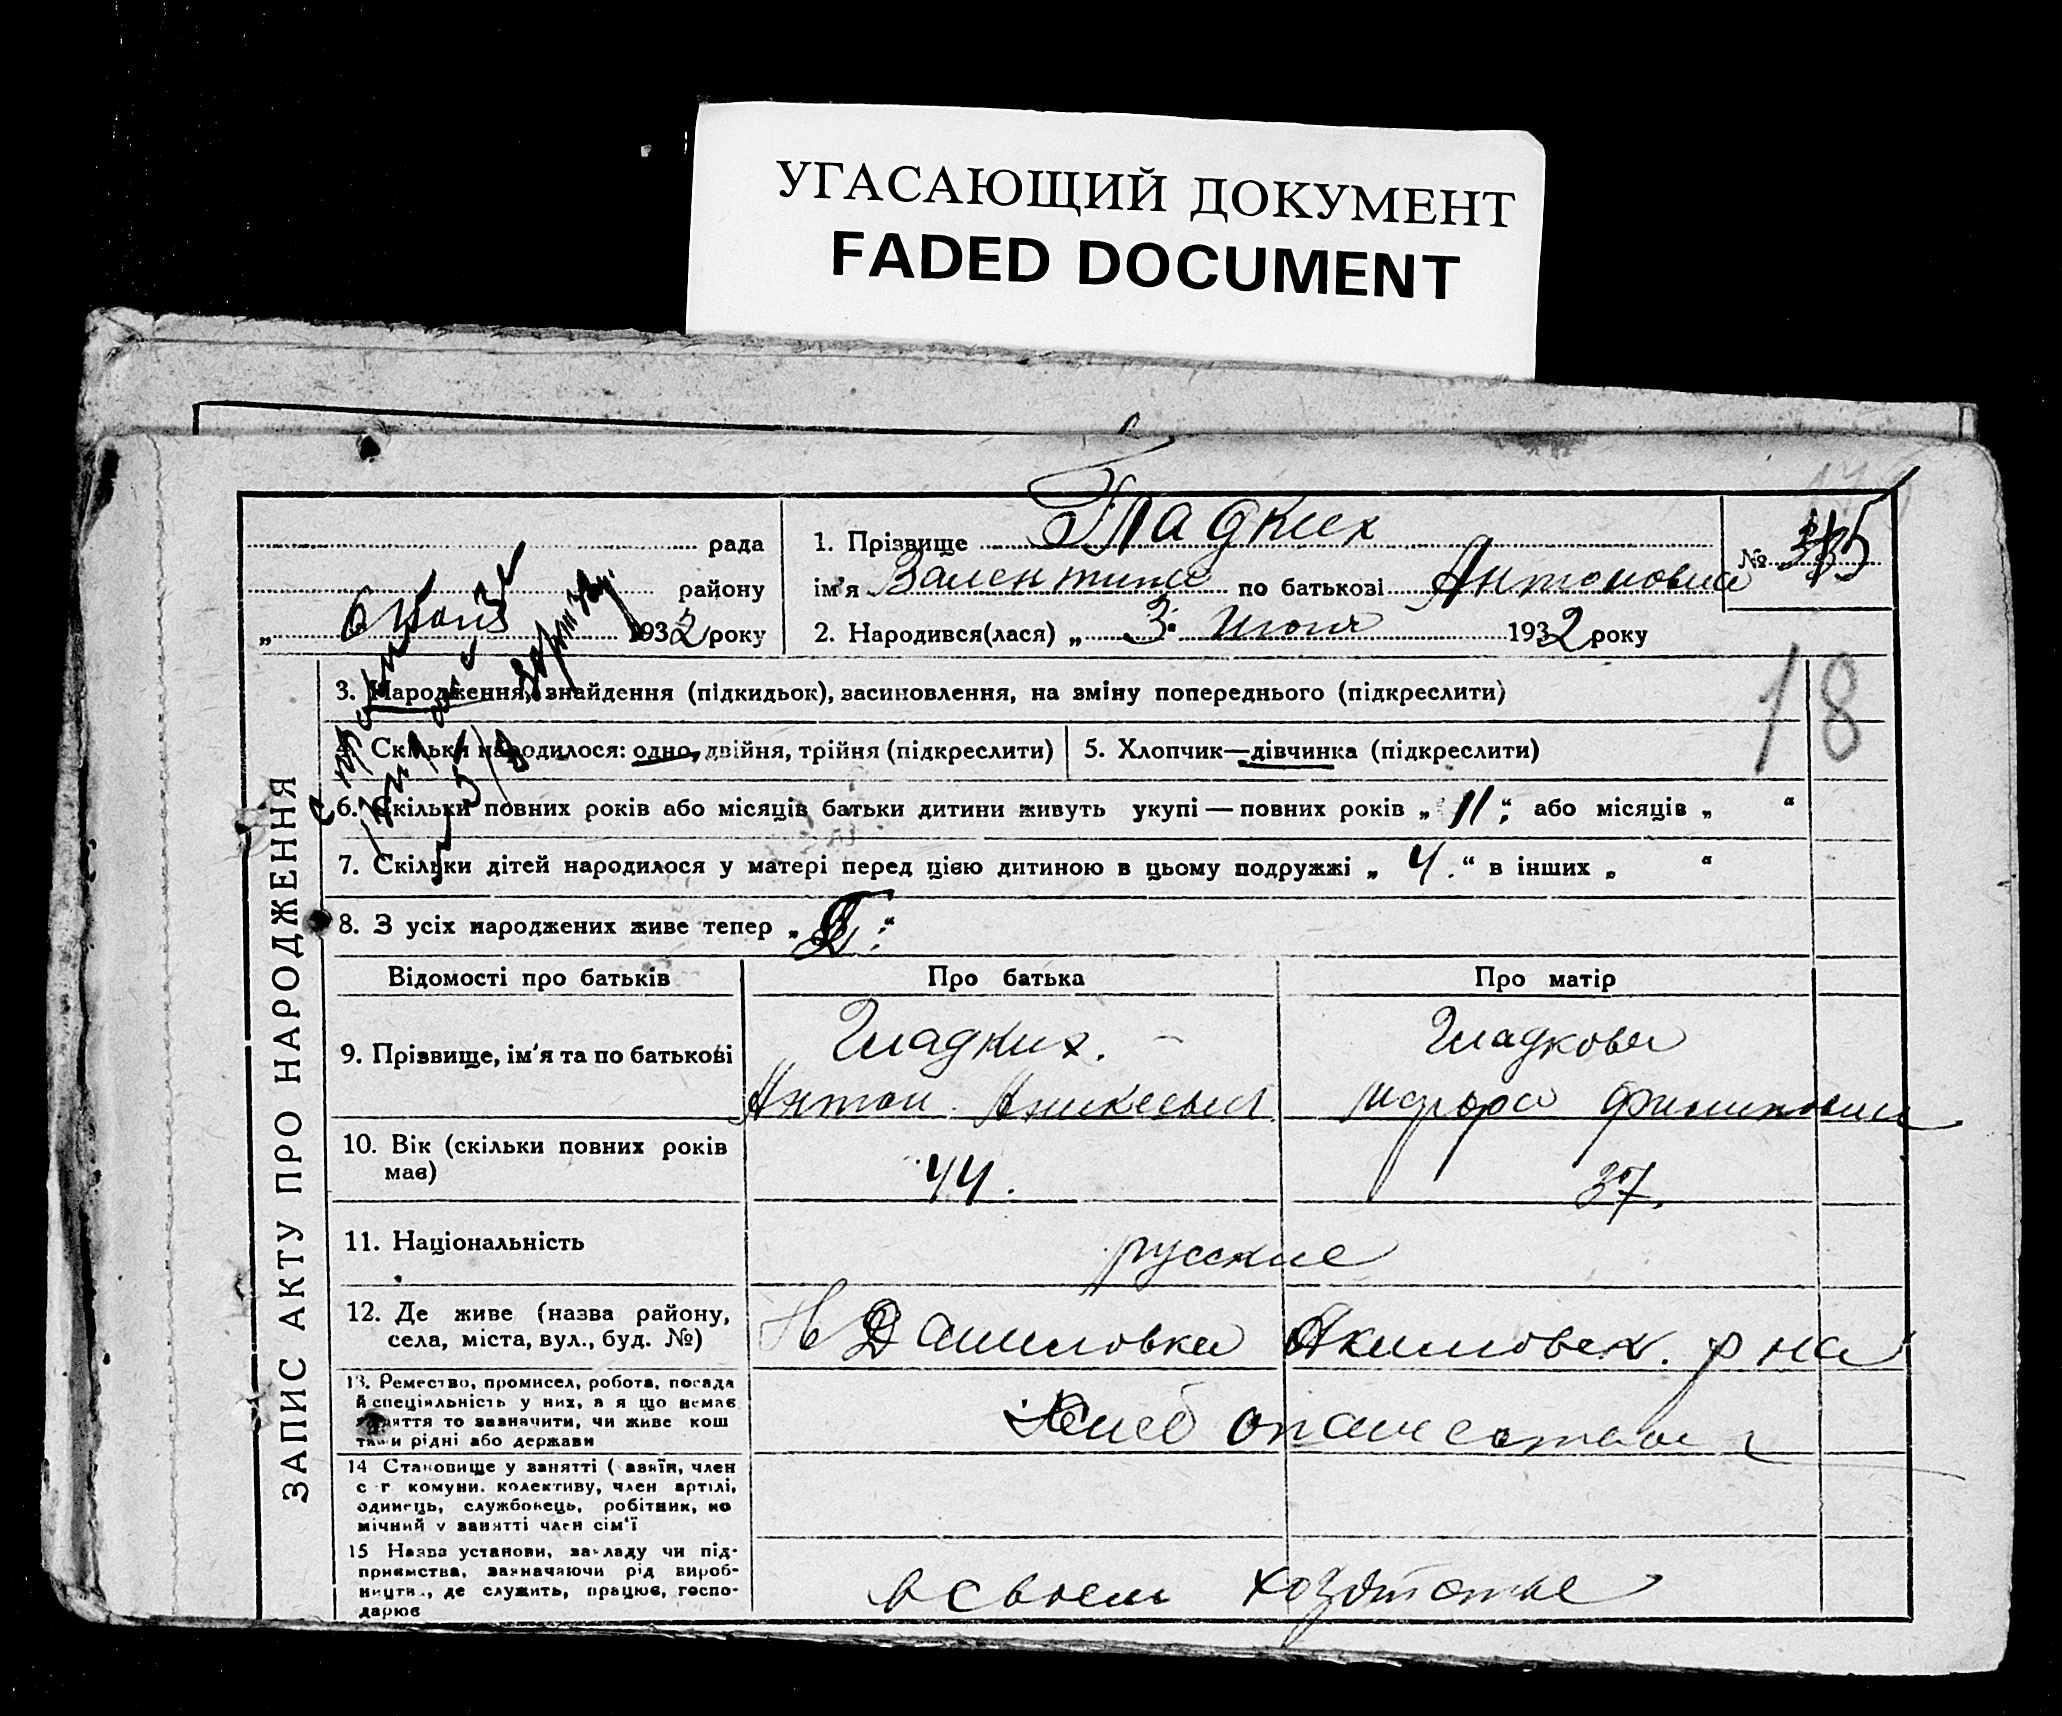 УГАСАЮЩИЙ ДОКУМЕНТ
FADED DOCUMENT
ЗАПИС АКТУ ПРО НАРОДЖЕННЯ
рада
району
„ 6 193 2 року
1. Прізвище Гладких
№ 35
ім'я Валентина по батькові Антоновна
2. Народився(лася) „ 3 " Июня 193 2 року
18
3. Народження, знайдення (підкидьок), засиновлення, на зміну попереднього (підкреслити)
4. Скільки народилося: одно, двійня, трійня (підкреслити)
5. Хлопчик—дівчинка (підкреслити)
6. Скільки повних років або місяців батьки дитини живуть укупі — повних років „ 11 “ або місяців „ “
7. Скільки дітей народилося у матері перед цією дитиною в цьому подружжі „ 4. “ в інших „ “
8. З усіх народжених живе тепер „ “
Відомості про батьків
Про батька
Про матір
9. Прізвище, ім'я та по батькові
Гладких.
Антон
Гладкова
10. Вік (скільки повних років має)
44.
37.
11. Національність
русские
12. Де живе (назва району,
села, міста, вул., буд. №)
Н Даниловка Акимовск. р на
13. Ремество, промисел, робота, посада
й спеціяльність у них, а я що немає
заняття то зазначити, чи живе кош
тами рідні або держави
Хлебопашество
14 Становище у занятті ( азяїн, член
с г комуни. колективу, член артілі,
одинець, службовець, робітник, по
мічний у занятті член сім'ї
15 Назва установи, закладу чи під-
приємства, зазначаючи рід вироб-
ництв., де служить, працює, госпо-
дарює
в своем хозяйстве